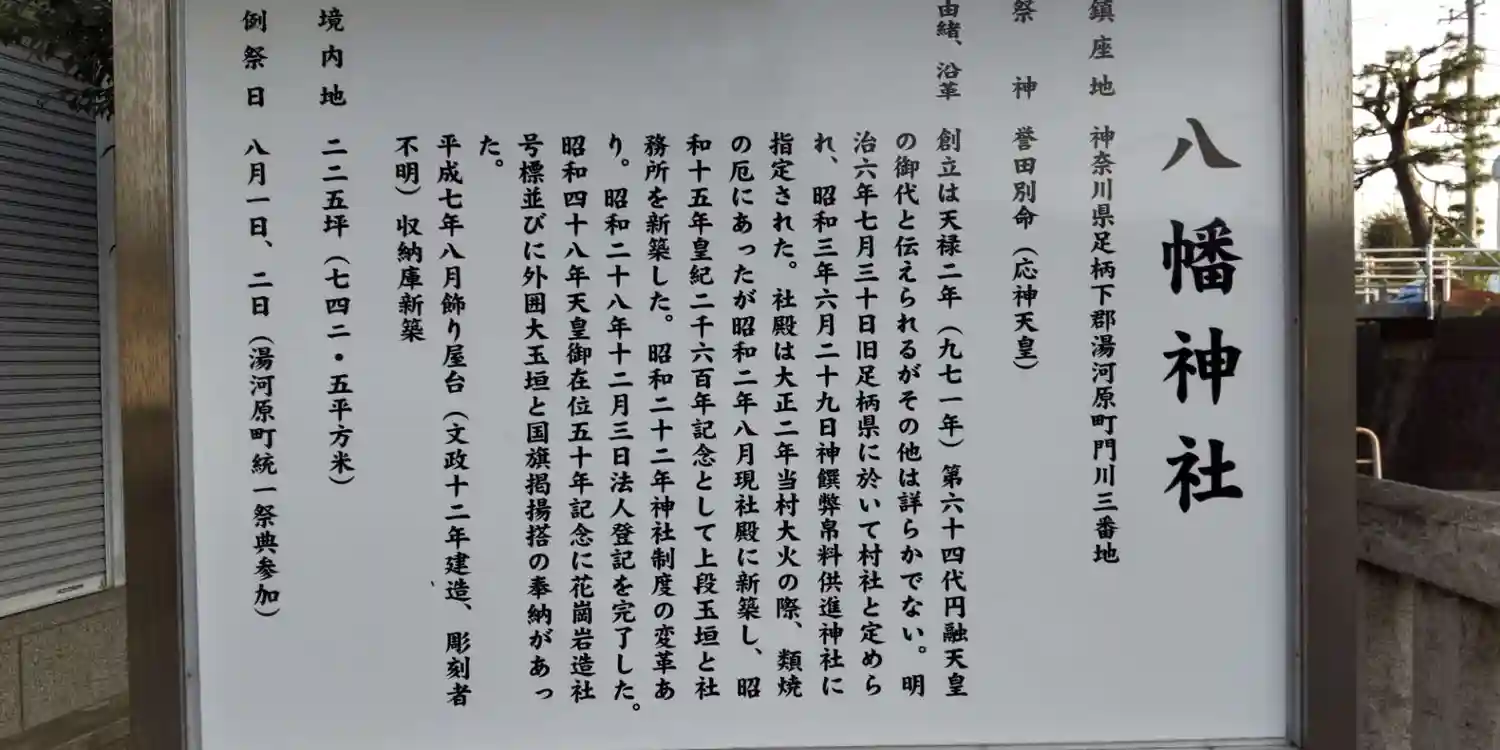 八幡神社
鎮座地 神奈川県足柄下郡湯河原町門川三番地
祭神 誉田別命（応神天皇）
由緒、沿革 創立は天禄二年（九七一年）第六十四代円融天皇
の御代と伝えられるがその他は詳らかでない。明
治六年七月三十日旧足柄県に於いて村社と定めら
れ、昭和三年六月二十九日神饌弊帛料供進神社に
指定された。社殿は大正二年当村大火の際、類焼
の厄にあったが昭和二年八月現社殿に新築し、昭
和十五年皇紀二千六百年記念として上段玉垣と社
務所を新築した。昭和二十二年神社制度の変革あ
り。昭和二十八年十二月三日法人登記を完了した。
昭和四十八年天皇御在位五十年記念に花崗岩造社
号標並びに外囲大玉垣と国旗掲揚搭の奉納があっ
た。
平成七年八月飾り屋台（文政十二年建造、彫刻者
不明）収納庫新築
境内地 二二五坪（七四二・五平方米）
例祭日 八月一日、二日（湯河原町統一祭典参加）